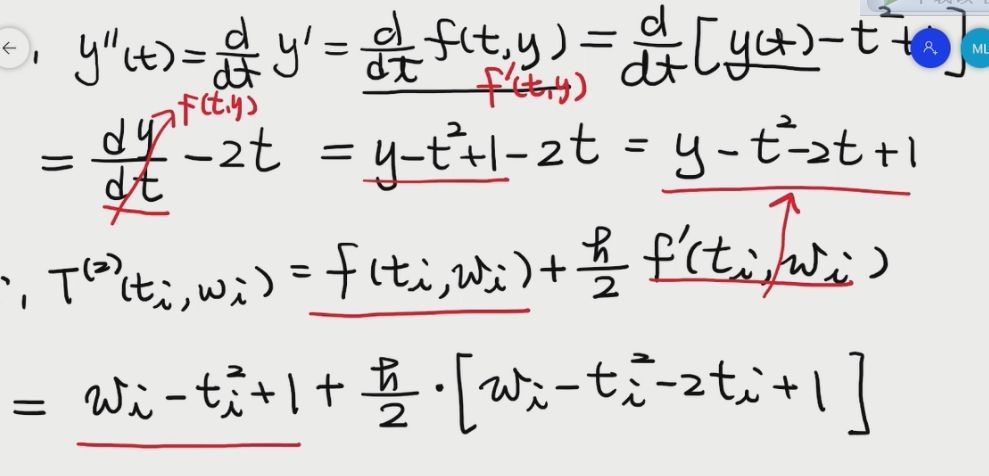 ∴ y''(t) = d/dt y' = d/dt f(t,y) = d/dt [y(t) - t² + ]
f'(t,y)
f(t,y)
= dy/dt - 2t = y - t² + 1 - 2t = y - t² - 2t + 1
∴ T⁽²⁾(tᵢ, wᵢ) = f(tᵢ, wᵢ) + h/2 f'(tᵢ, wᵢ)
= wᵢ - tᵢ² + 1 + h/2 · [wᵢ - tᵢ² - 2tᵢ + 1]
ML